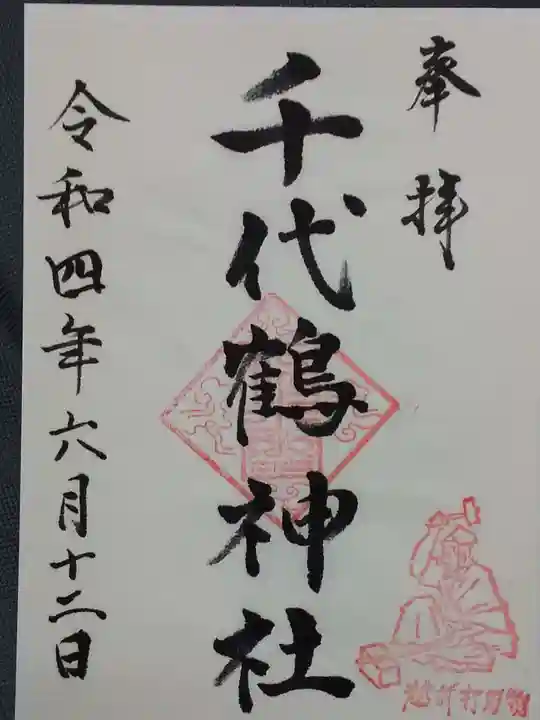 奉拝
千代鶴神社
令和四年六月十二日
越前打刃物